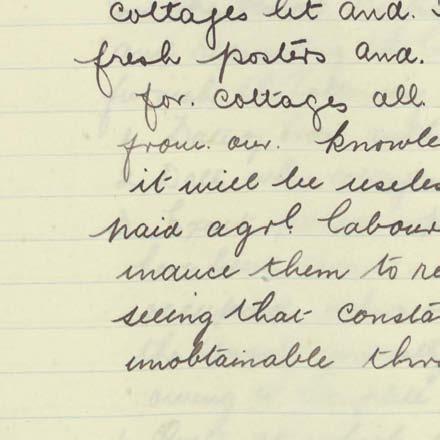 cottages let and.
fresh posters and.
for. cottages all.
from. our. knowle
it will be useles
paid agrl. labour
induce them to re
seeing that consta
unobtainable thro